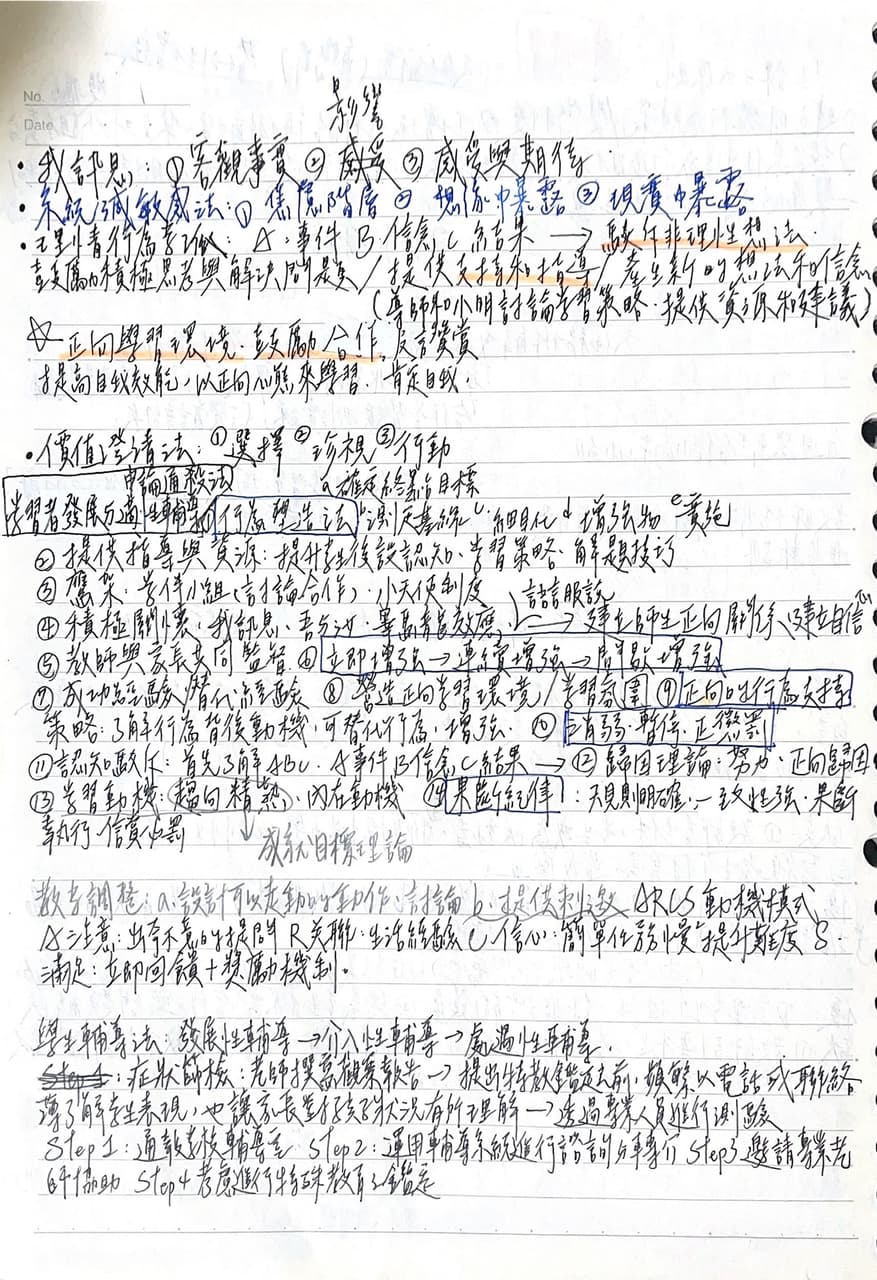 No. 1
影響
Date
・我訊息:①客觀事實 ②感受 ③感受與期待.
・系統減敏感法:① 焦慮階層 ② 想像中暴露 ③ 現實中暴露
・理情行為學派:A:事件 B.信念 C 結果 → 駁斥非理性想法.
鼓勵積極思考與解決問題/提供支持和指導/產生新的想法和信念
(導師和小明討論學習策略.提供資源和建議)
☆正向學習環境.鼓勵合作,
提高自我效能,以正向心態來學習.肯定自我.
・價值澄清法:①選擇 ②珍視 ③行動
申論通殺法 a.確定終點目標
學習者發展 輔導 ①行為塑造法 b測定基線 c.細目化 d增強物 e實施
②提供指導與資源:提升學生後設認知、學習策略.解題技巧
③鷹架.學伴小組(討論合作).小天使制度 諮詢服務
④積極關懷:我訊息. 畢馬龍效應,→建立師生正向關係、建立自信心
⑤教師與家長共同監督 ⑥立即增強→連續增強→間歇增強
⑦成功經驗/替代經驗 ⑧營造正向學習環境/學習氛圍 ⑨正向的行為支持
策略:了解行為背後動機,可替代行為,增強. ⑩消弱.暫停.正懲罰
⑪認知駁斥:首先了解ABC. A事件 B信念 C結果→⑫歸因理論:努力.正向歸因
⑬學習動機:趨向精熟,內在動機 ⑭果斷紀律:規則明確.一致性強.果斷
執行.信賞必罰 成就目標理論
教學調整:a.設計可以走動的動作、討論 b.提供刺激 ARCS動機模式
A注意:出奇不意的提問 R關聯:生活經驗 C信心:簡單任務慢慢提升難度 S.
滿足:立即回饋+獎勵機制.
學生輔導法:發展性輔導→介入性輔導→處遇性輔導.
Step1:症狀篩檢:老師撰寫觀察報告→提出特教鑑定前,頻繁以電話或聯絡
簿了解學生表現,也讓家長對孩子狀況有所理解→透過專業人員進行測驗
Step1:通報學校輔導室. Step2:運用輔導系統進行諮詢與轉介 Step3邀請專業老
師協助 Step4考慮進行特殊教育之鑑定